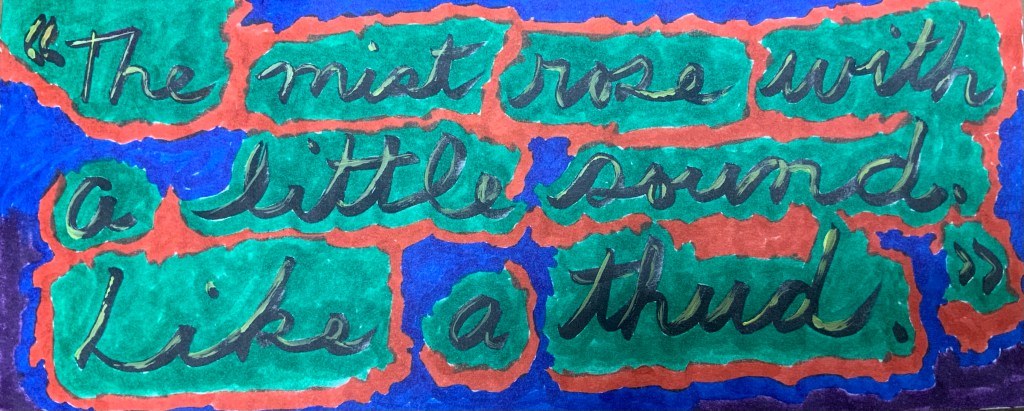 "The mist rose with
a little sound.
Like a thud."